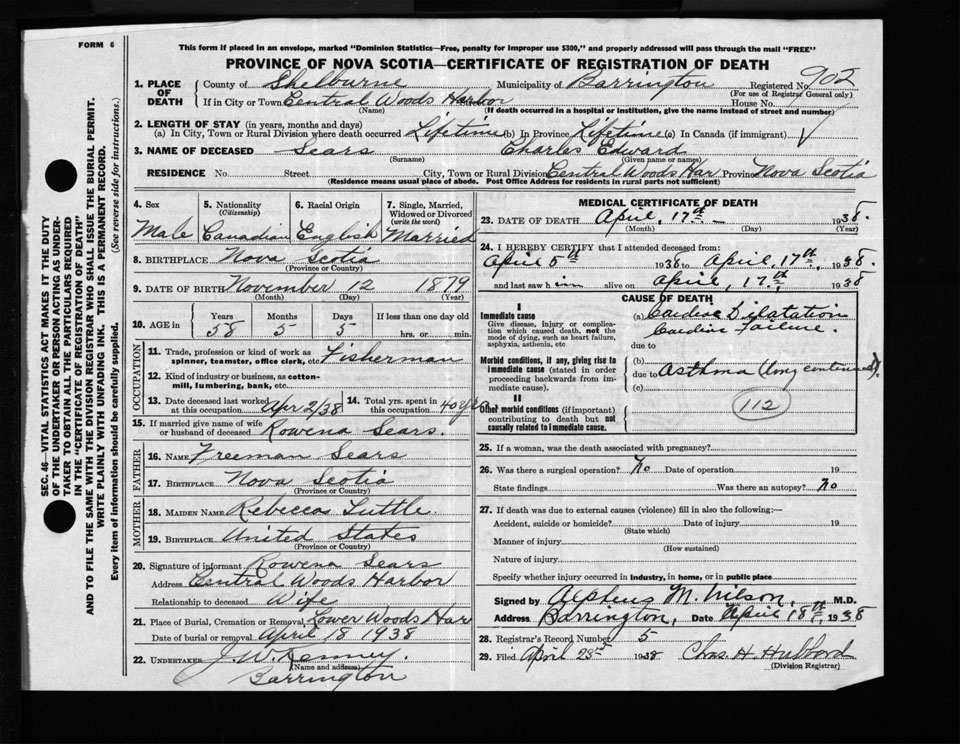 FORM 6
This form if placed in an envelope, marked "Dominion Statistics—Free, penalty for improper use $300," and properly addressed will pass through the mail "FREE"
PROVINCE OF NOVA SCOTIA—CERTIFICATE OF REGISTRATION OF DEATH
1. PLACE OF DEATH County of Shelburne Municipality of Barrington Registered No. 902
(For use of Registrar General only)
If in City or Town Central Woods Harbor House No.
(Name) (If death occurred in a hospital or institution, give the name instead of street and number)
2. LENGTH OF STAY (in years, months and days)
(a) In City, Town or Rural Division where death occurred Lifetime (b) In Province Lifetime (c) In Canada (if immigrant)
3. NAME OF DECEASED Sears Charles Edward
(Surname) (Given name or names)
RESIDENCE No. Street City, Town or Rural Division Central Woods Har Province Nova Scotia
(Residence means usual place of abode. Post Office Address for residents in rural parts not sufficient)
4. Sex 5. Nationality (Citizenship) 6. Racial Origin 7. Single, Married, Widowed or Divorced (write the word)
Male Canadian English Married
8. BIRTHPLACE Nova Scotia
(Province or Country)
9. DATE OF BIRTH November 12 1879
(Month) (Day) (Year)
10. AGE in Years Months Days If less than one day old
58 5 5 hrs. or min.
OCCUPATION
11. Trade, profession or kind of work as spinner, teamster, office clerk, etc. Fisherman
12. Kind of industry or business, as cotton-mill, lumbering, bank, etc.
13. Date deceased last worked at this occupation Apr 2/38 14. Total yrs. spent in this occupation 40 yrs
15. If married give name of wife or husband of deceased Rowena Sears.
FATHER
16. NAME Freeman Sears
17. BIRTHPLACE Nova Scotia
(Province or Country)
MOTHER
18. MAIDEN NAME Rebecca Suttle
19. BIRTHPLACE United States
(Province or Country)
20. Signature of informant Rowena Sears
Address Central Woods Harbor
Relationship to deceased Wife
21. Place of Burial, Cremation or Removal Lower Woods Har
Date of burial or removal April 18 1938
22. UNDERTAKER J. W. Kenney.
(Name and address)
Barrington
MEDICAL CERTIFICATE OF DEATH
23. DATE OF DEATH April, 17th 1938
(Month) (Day) (Year)
24. I HEREBY CERTIFY that I attended deceased from:
April 5th 1938 to April, 17th, 1938.
and last saw him alive on April, 17th, 1938
CAUSE OF DEATH
I
Immediate cause
Give disease, injury or complication which caused death, not the mode of dying, such as heart failure, asphyxia, asthenia, etc
(a) Cardiac Dilatation
Cardiac Failure.
due to
Morbid conditions, if any, giving rise to immediate cause (stated in order proceeding backwards from immediate cause).
(b)
due to Asthma (long continued).
(c)
II
Other morbid conditions (if important) contributing to death but not causally related to immediate cause.
112
25. If a woman, was the death associated with pregnancy?
26. Was there a surgical operation? No Date of operation 19
State findings Was there an autopsy? No
27. If death was due to external causes (violence) fill in also the following:—
Accident, suicide or homicide? Date of injury 19
(State which)
Manner of injury
(How sustained)
Nature of injury
Specify whether injury occurred in industry, in home, or in public place
Signed by Alpheus M. Wilson, M.D.
Address Barrington, Date April 18th, 1938
28. Registrar's Record Number 5
29. Filed April 23rd 1938 Chas. H. Hubbard
(Division Registrar)
SEC. 46—VITAL STATISTICS ACT MAKES IT THE DUTY
OF THE UNDERTAKER OR PERSON ACTING AS UNDER-
TAKER TO OBTAIN ALL THE PARTICULARS REQUIRED
IN THE "CERTIFICATE OF REGISTRATION OF DEATH"
AND TO FILE THE SAME WITH THE DIVISION REGISTRAR WHO SHALL ISSUE THE BURIAL PERMIT.
WRITE PLAINLY WITH UNFADING INK. THIS IS A PERMANENT RECORD.
Every item of information should be carefully supplied. (See reverse side for instructions.)